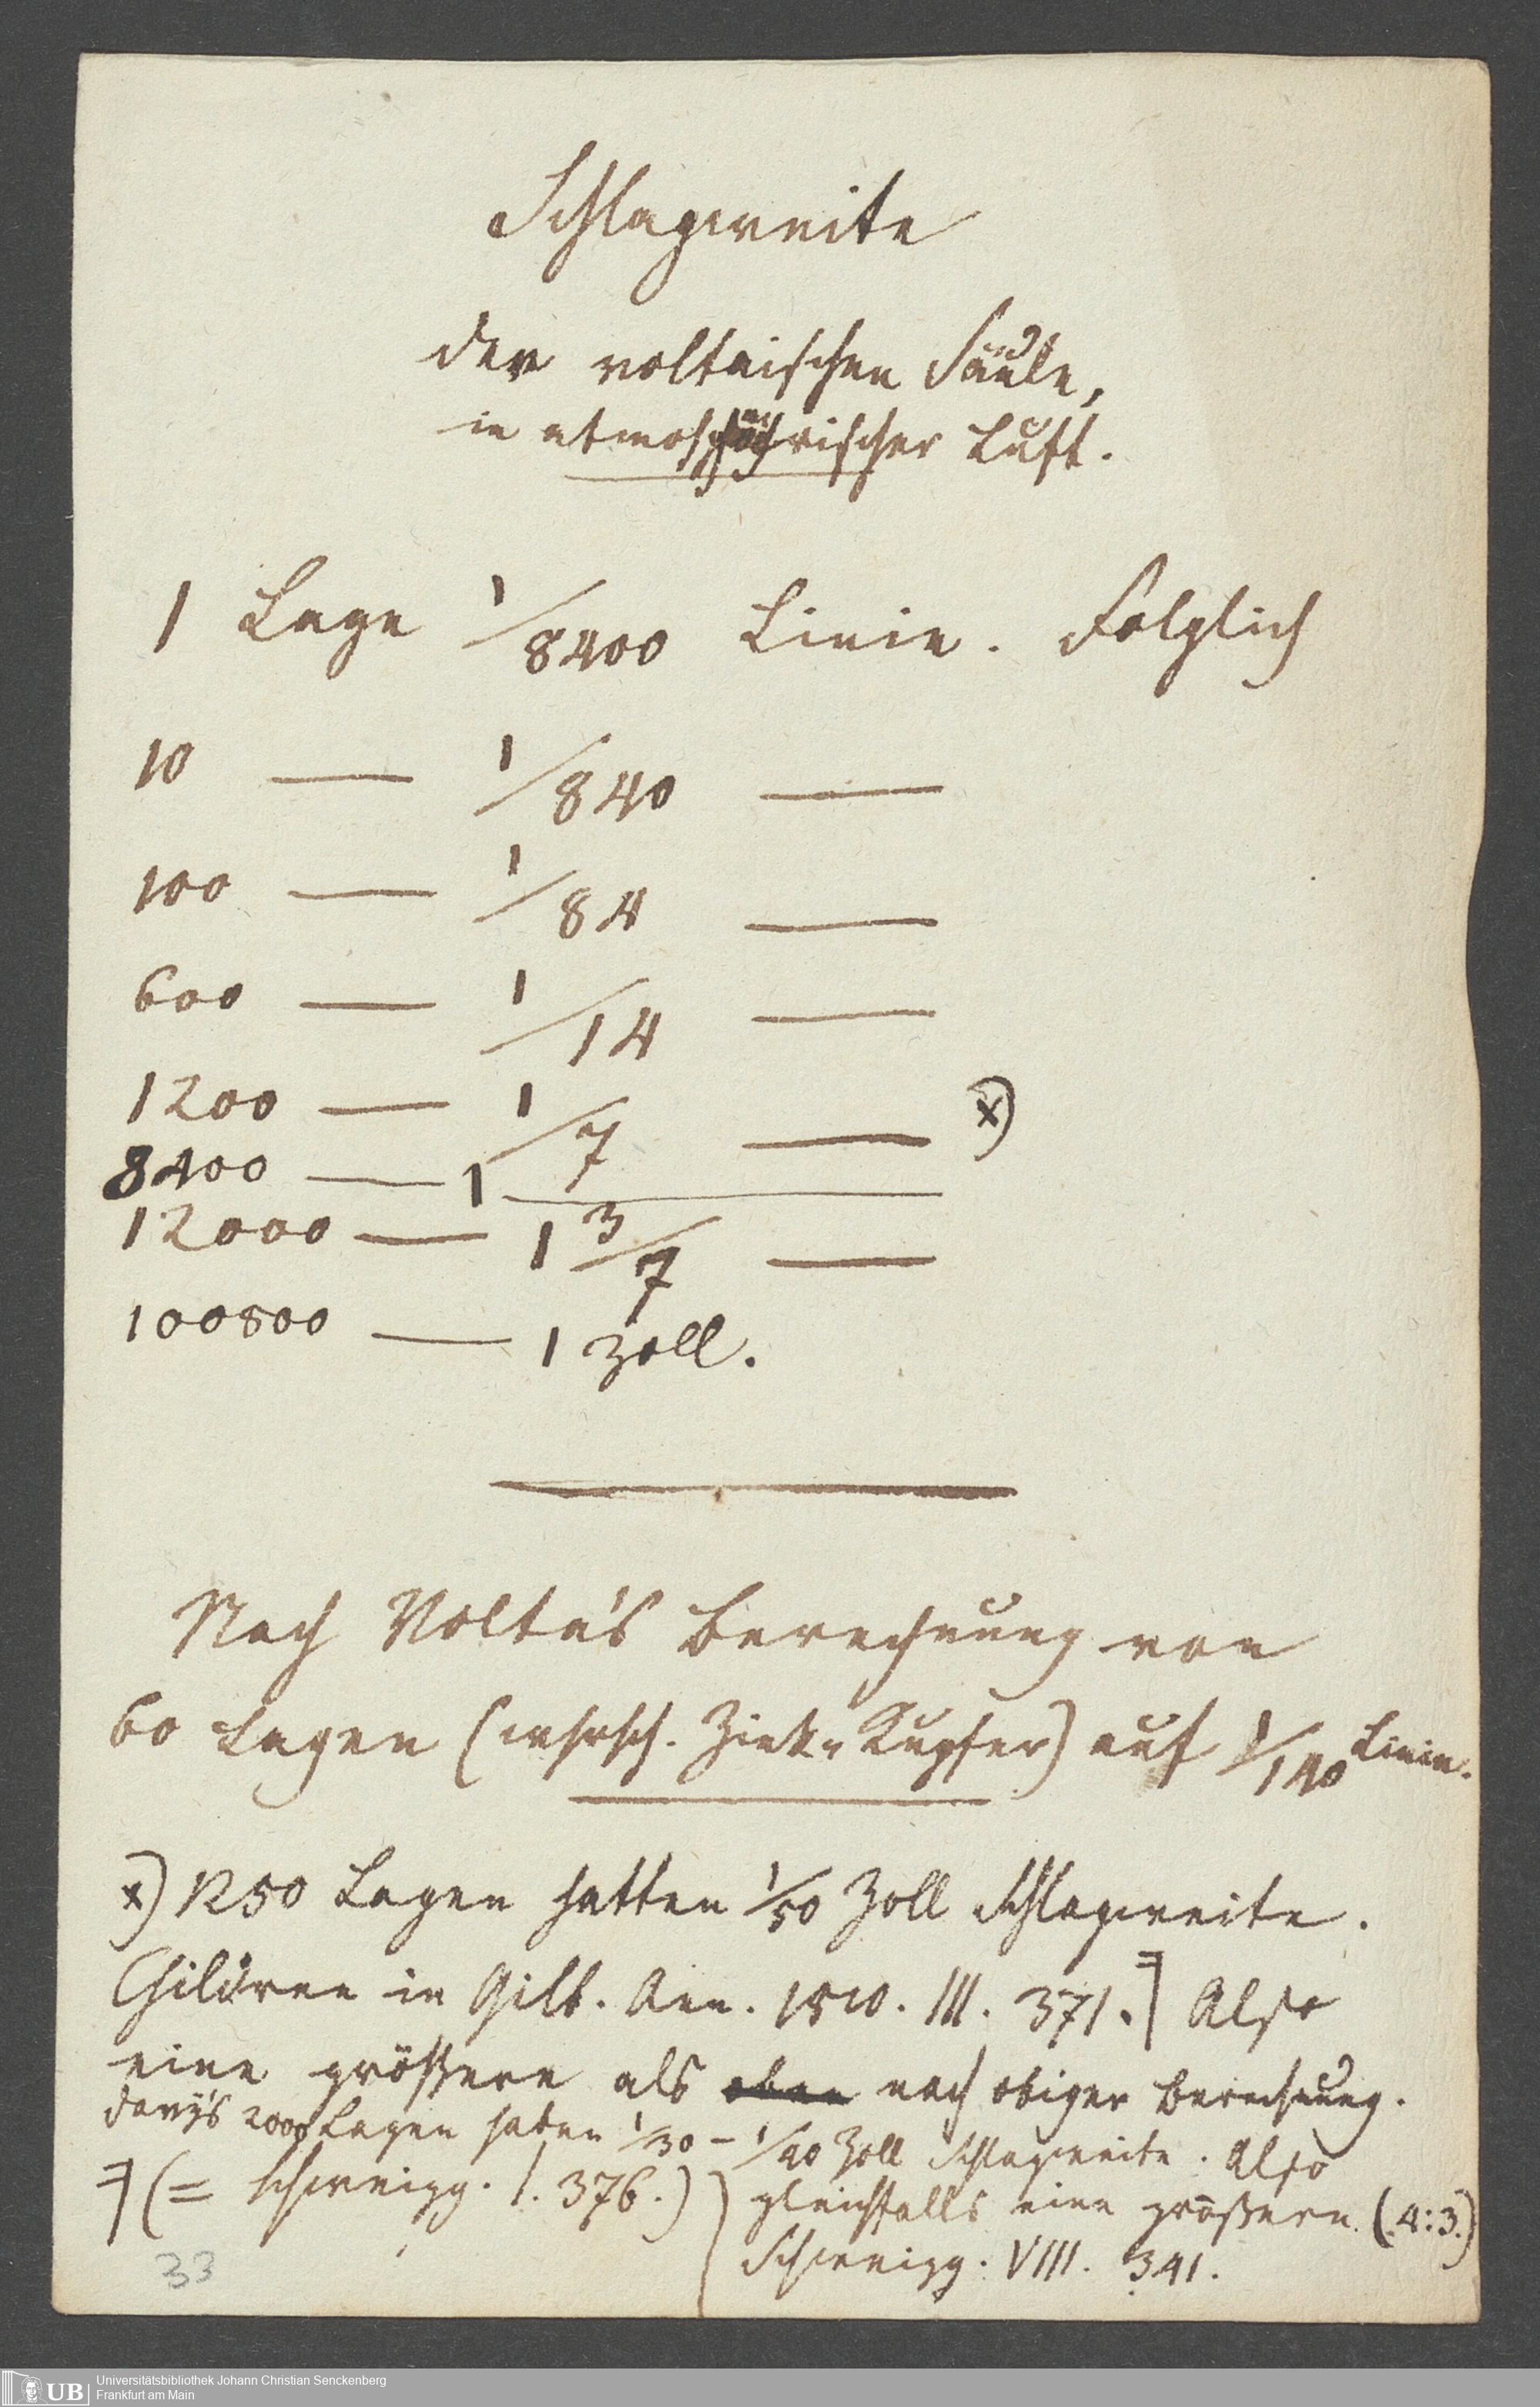 Schlagweite
der voltaischen Säule,
in atmosphärischer Luft.
1 Lage 1/8400 Linie. Folglich
10 — 1/840 —
100 — 1/84 —
600 — 1/14 —
1200 — 1/7 — x)
8400 — 1 —
12000 — 1 3/7 —
100800 — 1 Zoll.
Nach Volta's Berechnung von
60 Lagen (wahrsch. Zink u Kupfer) auf 1/140 Linie.
x) 1250 Lagen hatten 1/50 Zoll Schlagweite.
Children in Gilb. Ann. 1810. III. 371. Also
eine größere als oben nach obiger Berechnung.
Davy's 2000 Lagen hatten 1/30 – 1/40 Zoll Schlagweite. Also
(= Schweigg. I. 376.) gleichfalls eine größere. (4:3.)
Schweigg. VIII. 341.
33
UB Universitätsbibliothek Johann Christian Senckenberg
Frankfurt am Main